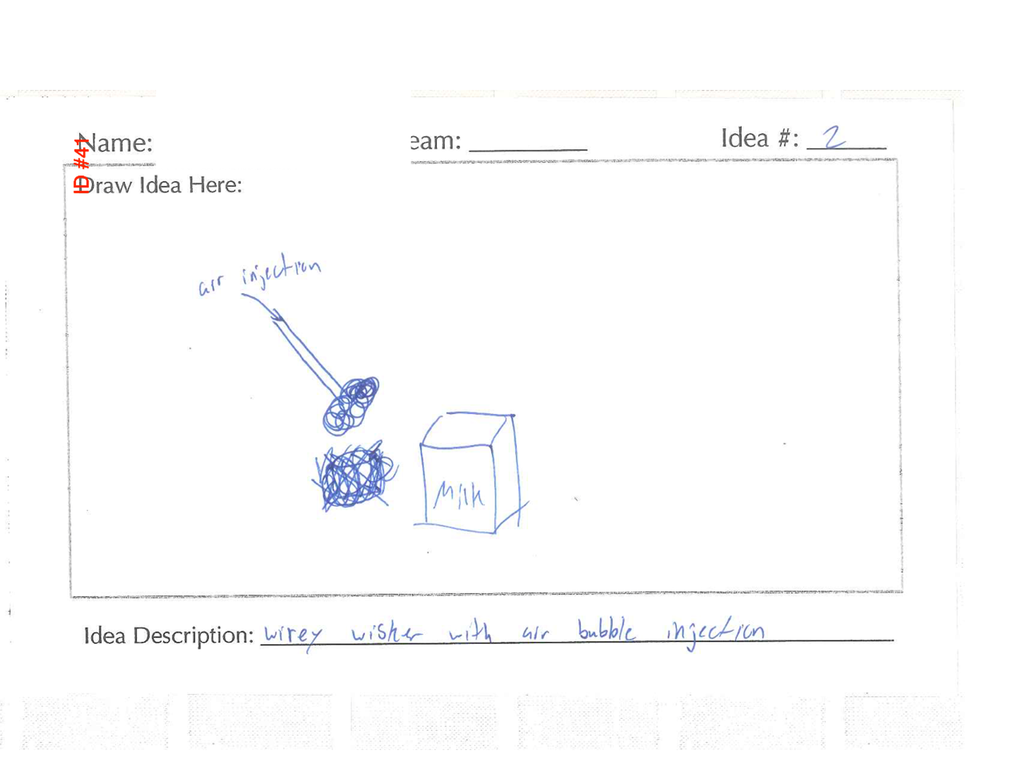 Name:
eam:
Idea #: 2
ID #41
Draw Idea Here:
air injection
Milk
Idea Description: wirey wisker with air bubble injection